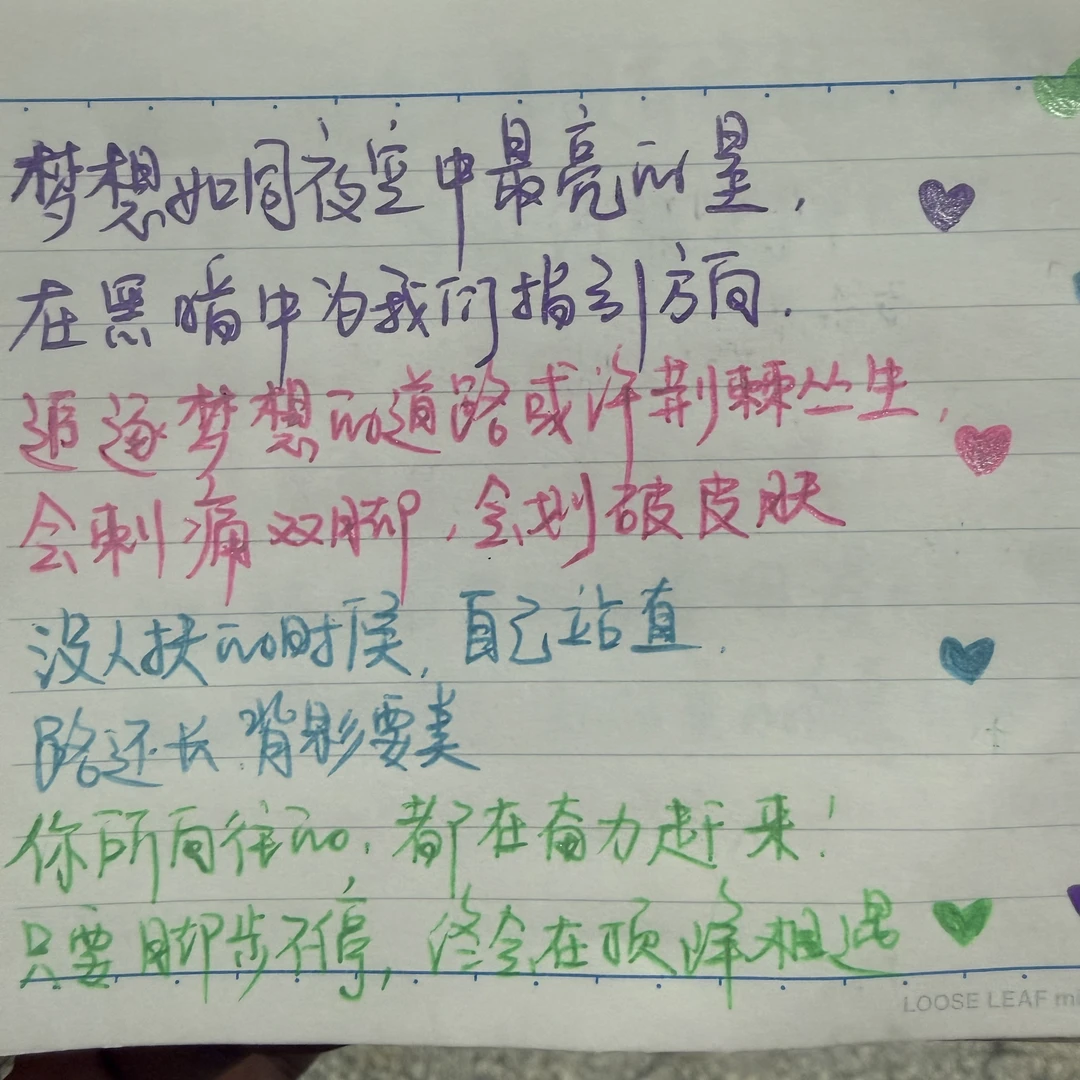 梦想如同夜空中最亮的星,
在黑暗中为我们指引方向.
追逐梦想的道路或许荆棘丛生,
会刺痛双脚,会划破皮肤
没人扶的时候,自己站直.
路还长.背影要美
你所向往的,都在奋力赶来!
只要脚步不停,终会在顶峰相遇
LOOSE LEAF mi